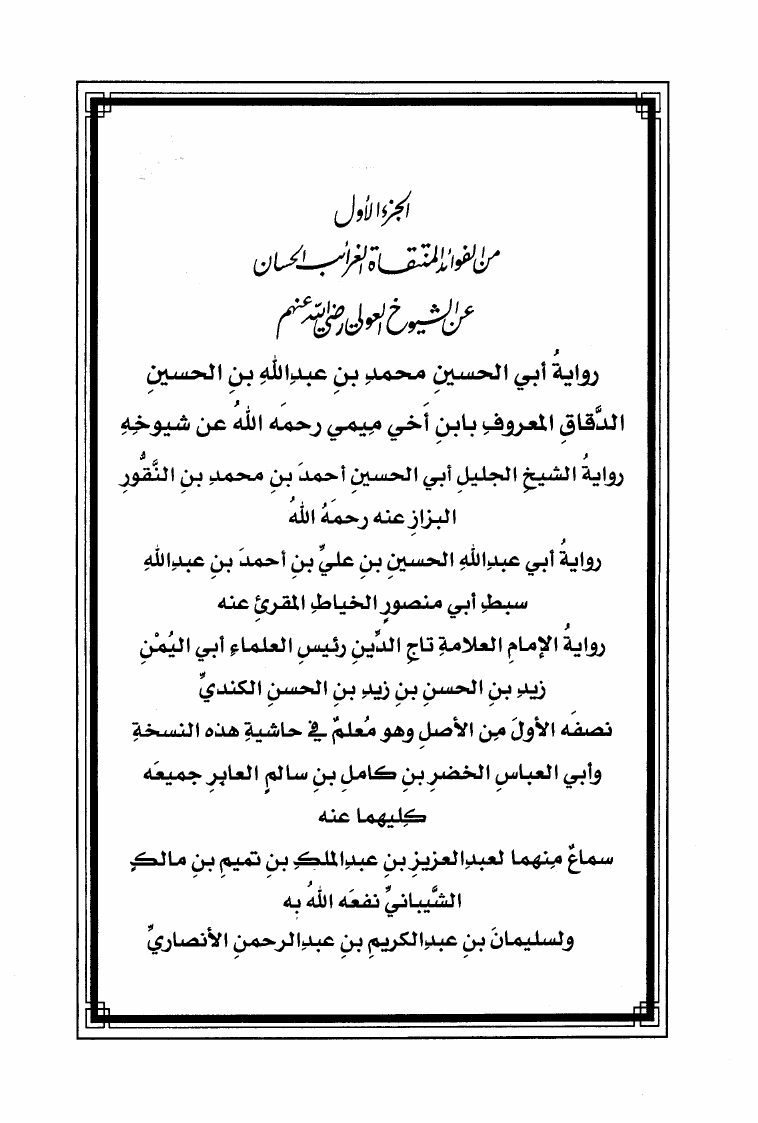 الجزء الأول
من الفوائد المنتقاة الغرائب الحسان
عن الشيوخ العوالي رضي الله عنهم
روايةُ أبي الحسينِ محمدِ بنِ عبدِاللهِ بنِ الحسينِ
الدَّقاقِ المعروفِ بابنِ أَخي مِيمي رحمَه اللهُ عن شيوخِهِ
روايةُ الشيخِ الجليلِ أبي الحسينِ أحمدَ بنِ محمدِ بنِ النَّقُّورِ
البزازِ عنه رحمَهُ اللهُ
روايةُ أبي عبدِاللهِ الحسينِ بنِ عليِّ بنِ أحمدَ بنِ عبدِاللهِ
سبطِ أبي منصورٍ الخياطِ المقرئِ عنه
روايةُ الإمامِ العلامةِ تاجِ الدِّينِ رئيسِ العلماءِ أبي اليُمْنِ
زيدِ بنِ الحسنِ بنِ زيدِ بنِ الحسنِ الكنديِّ
نصفَه الأولَ مِن الأصلِ وهو مُعلمٌ في حاشيةِ هذه النسخةِ
وأبي العباسِ الخضرِ بنِ كاملِ بنِ سالمٍ العابرِ جميعَه
كِليهما عنه
سماعٌ مِنهما لعبدِالعزيزِ بنِ عبدِالملكِ بنِ تميمِ بنِ مالكٍ
الشَّيبانيِّ نفعَه اللهُ به
ولسليمانَ بنِ عبدِالكريمِ بنِ عبدِالرحمنِ الأنصاريِّ